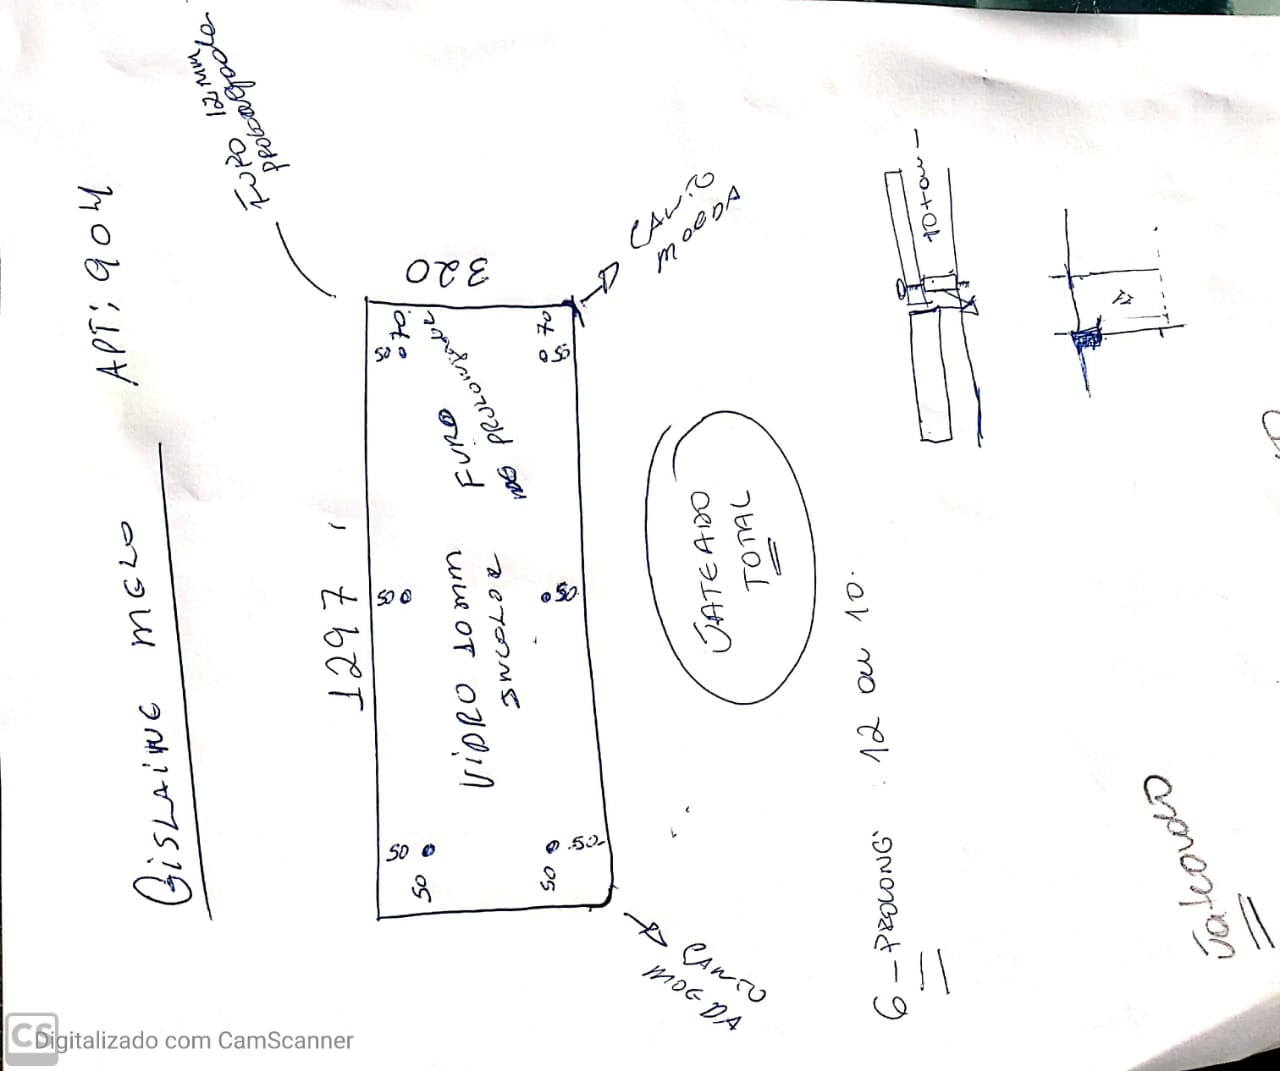 GISLAINE MELO APT: 904
FURO 12mm
PROLONGADOR
1297
320
50 70
50
50
50
FURO
P/ PROLONGADOR
VIDRO TOmm
INCOLOR
70
50
50
50
50
CANTO
MOEDA
CANTO
MOEDA
JATEADO
TOTAL
6 - PROLONG. 12 ou 10.
Jateado
CS Digitalizado com CamScanner